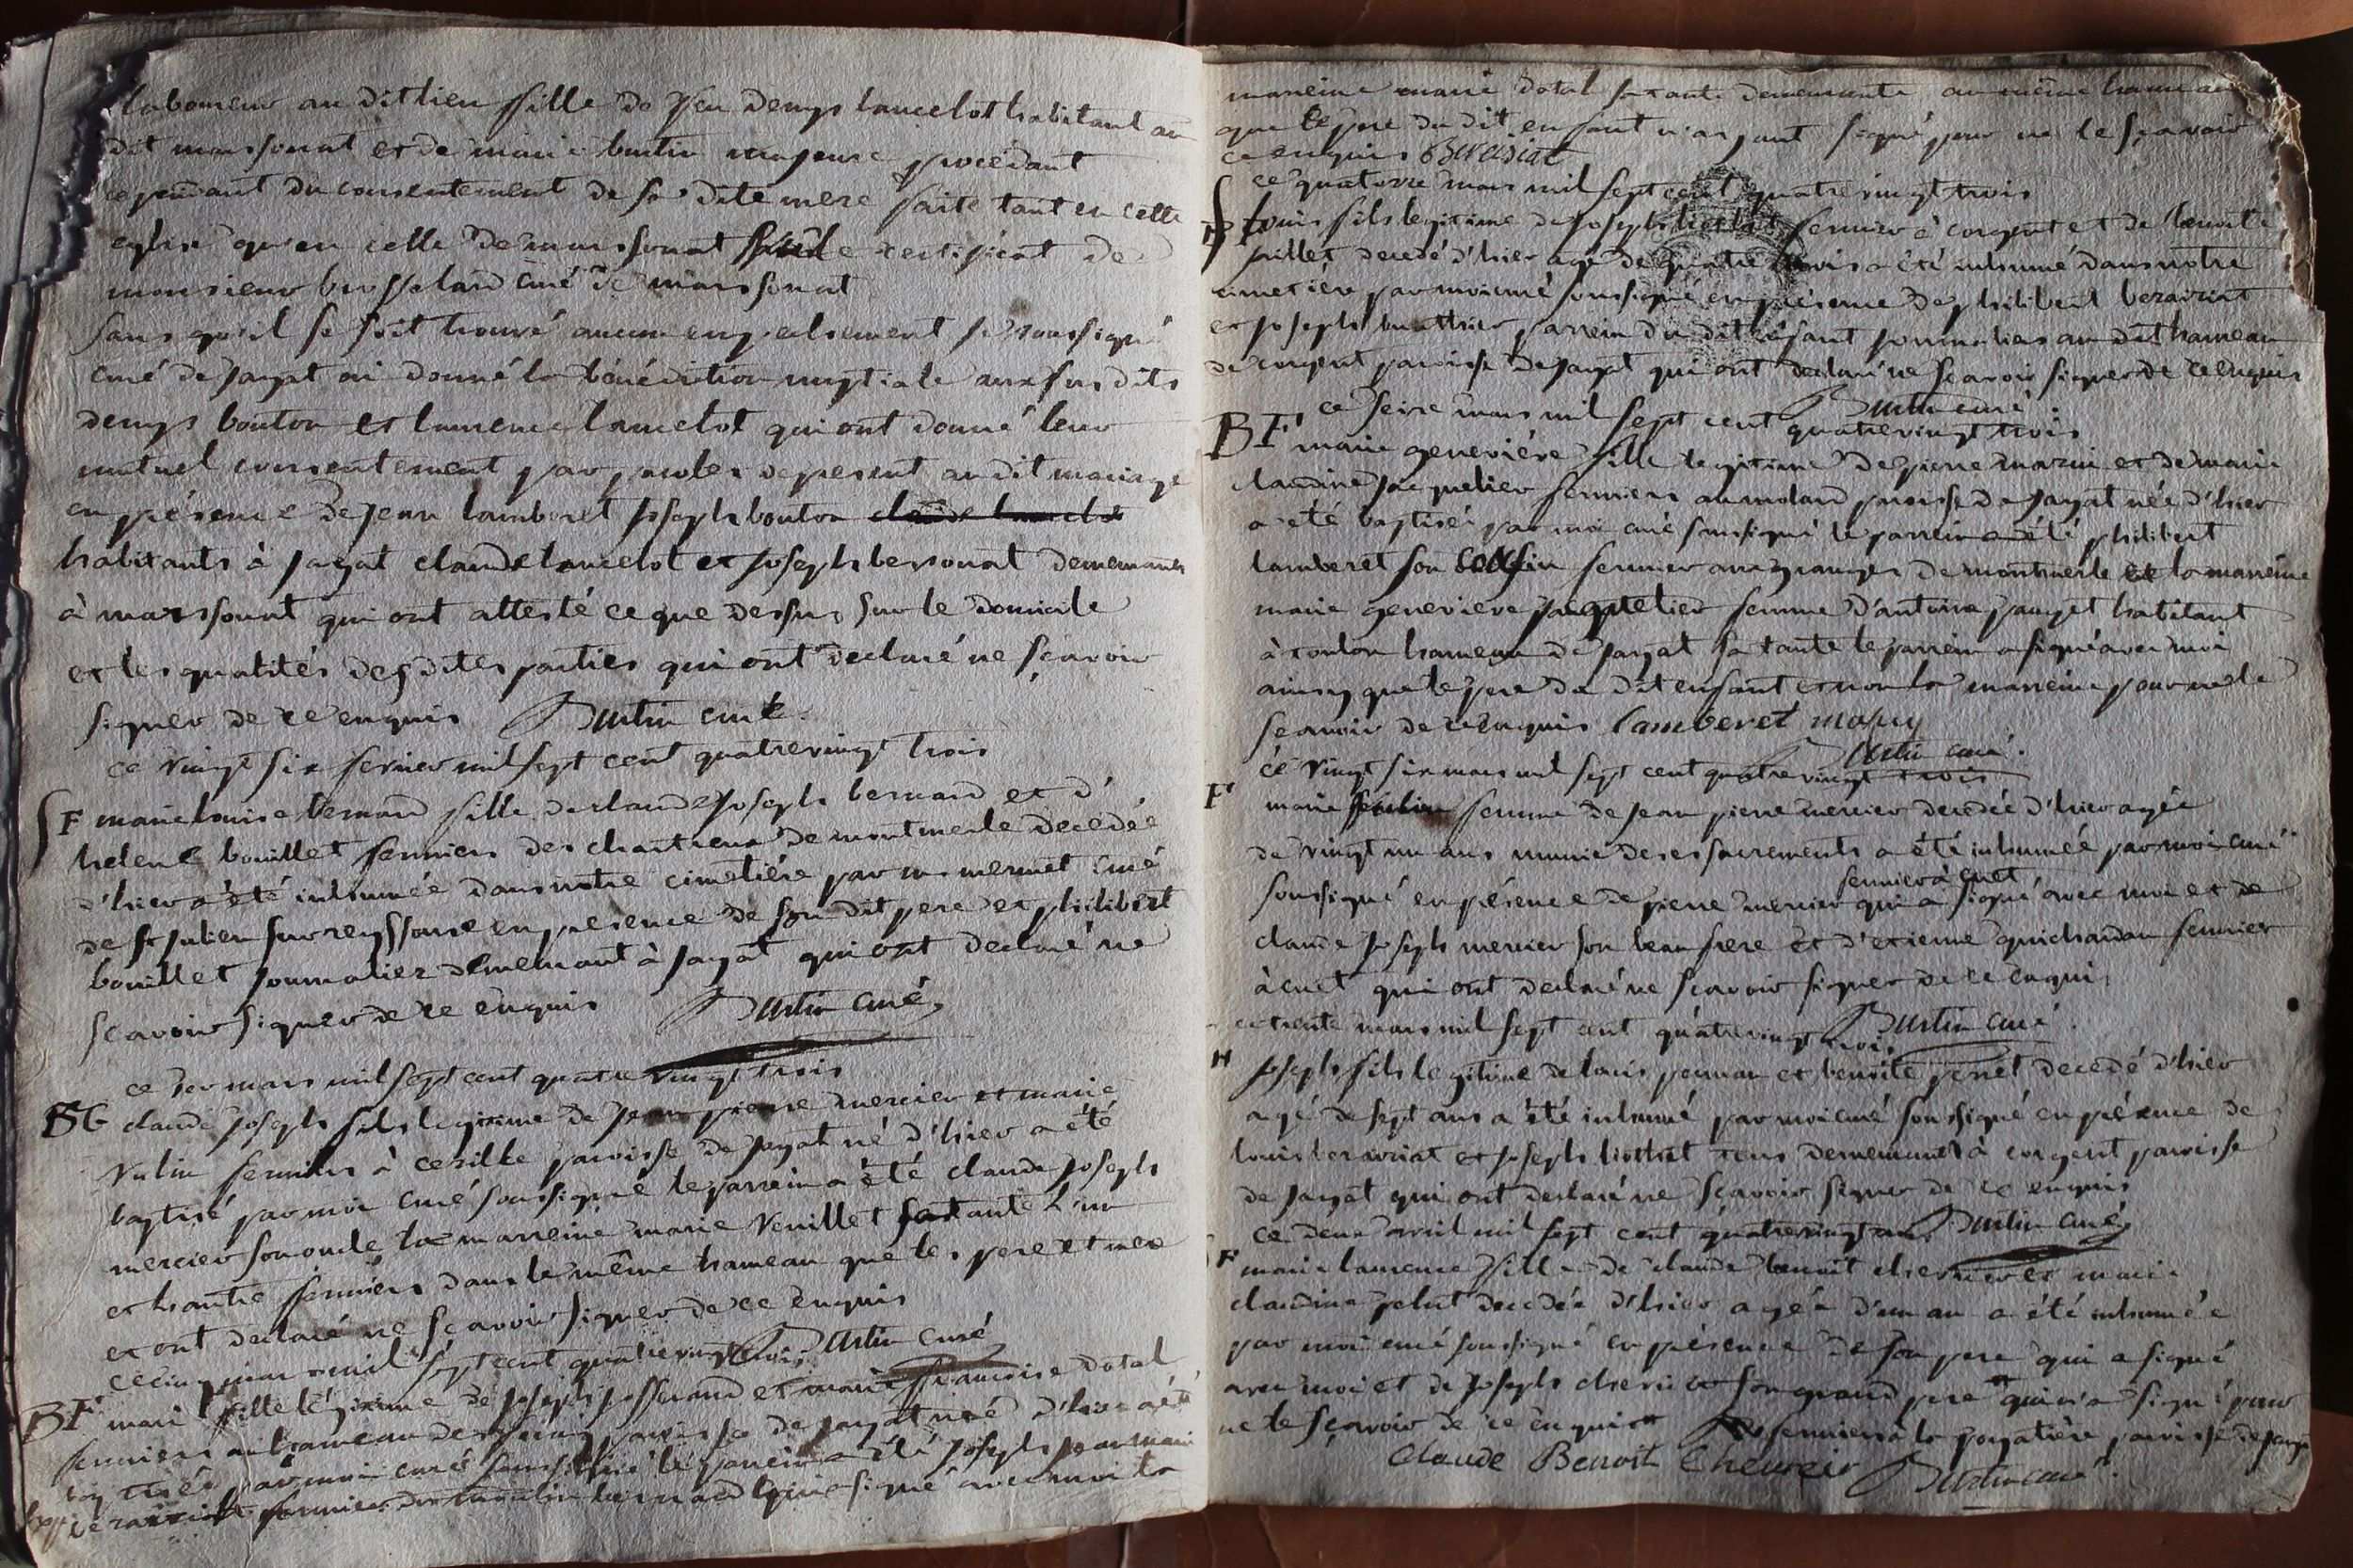 laboureur au dit lieu fille de feu denys lancelot habitant au
dit marssonat et de marie burtin majeure procedant
cependant du consentement de sa dite mere faite tant en cette
eglise qu'en celle de marssonat certificat de
monsieur brosselard curé de marssonat
sans qu'il se soit trouvé aucun empechement je soussigné
curé de jayat ai donné la bénédiction nuptiale aux susdits
denys bouton et laurence lancelot qui ont donné leur
mutuel consentement par paroles de present au dit mariage
en présence de jean lamberet joseph bouton claude lancelot
habitants à jayat claude lancelot et joseph bessonat demeurants
à marssonat qui ont attesté ce que dessus sur le domicile
et les qualités des dites parties qui ont declaré ne sçavoir
signer de ce enquis Burtin curé.
ce vingt six fevrier mil sept cent quatrevingt trois
SF marie louise bernard fille de claude joseph bernard et d'
helene bouillet fermiers des chartreux de montmerle decedée
d'hier a été inhumée dans notre cimetiére par mr mermet curé
de st julien sur reyssouse en presence de son dit pere et philibert
bouillet journalier demeurant à jayat qui ont declaré ne
sçavoir signer de ce enquis Burtin curé,
ce mars mil sept cent quatre vingt trois
BG claude joseph fils legitime de jean pierre mercier et marie
vulin fermiers à cezille paroisse de jayat né d'hier a été
baptisé par moi curé soussigné le parrein a été claude joseph
mercier son oncle la marreine marie veuillet sa tante l'un
et l'autre fermiers dans le même hameau que les pere et mere
et ont declaré ne sçavoir signer de ce enquis
ce cinq mars mil sept cent quatrevingt trois Burtin curé
BF marie fille légitime de joseph josserand et marie françoise dotal
fermiers au hameau des paroisse de jayat née d'hier a été
baptisée par moi curé soussigné le parrein a été joseph marie
fermier du moulin bernard qui a signé avec moi la
marreine marie dotal sa tante demeurante au même hameau
que le pere du dit enfant n'ayant signé pour ne le sçavoir
ce enquis
ce quatorze mars mil sept cent quatre vingt trois
SH Louis fils legitime de joseph fermier à corgent et de benoite
pillet decedé d'hier agé de quatre mois a été inhumé dans notre
cimetiére par moi curé soussigné en présence de philibert bezairiat
et joseph buathier parrein du dit enfant journaliers au dit hameau
de corgent paroisse de jayat qui ont declaré ne sçavoir signer de ce enquis
Burtin curé.
ce seize mars mil sept cent quatrevingt trois
BF marie geneviéve fille legitime de pierre mazui et de marie
claudine jacquelier fermiers au molard paroisse de jayat née d'hier
a été baptisée par moi curé soussigné le parrein a été philibert
lamberet son cousin fermier aux granges de montmerle et la marreine
marie genevieve jacquelier femme d'antoine pauget habitant
à coulon hameau de jayat sa tante le parrein a signé avec moi
ainsy que le pere du dit enfant et non la marreine pour ne le
scavoir de ce enquis Lamberet mazuy
Burtin curé.
ce vingt six mars mil sept cent quatre vingt trois
F marie femme de jean pierre mercier decedée d'hier agée
de vingt un ans munie de ses sacrements a été inhumée par moi curé
fermier à cuet
soussigné en présence de pierre mercier qui a signé avec moi et de
claude joseph mercier son beau frere et d'etienne quichardan fermier
à cuet qui ont declaré ne scavoir signer de ce enquis
ce trente mars mil sept cent quatrevingt trois Burtin curé.
H joseph fils legitime de louis et benoite decedé d'hier
agé de sept ans a été inhumé par moi curé soussigné en présence de
louis et joseph tous demeurants à corgent paroisse
de jayat qui ont declaré ne sçavoir signer de ce enquis
ce deux avril mil sept cent quatrevingt Burtin curé
F marie laurence fille de claude benoit et marie
claudine decedée d'hier agée d'un an a été inhumée
par moi curé soussigné en présence de son pere qui a signé
avec moi et de joseph son grand pere qui n'a signé pour
ne le sçavoir de ce enquis fermiers à la paroisse de jayat
Claude Benoit Burtin curé.